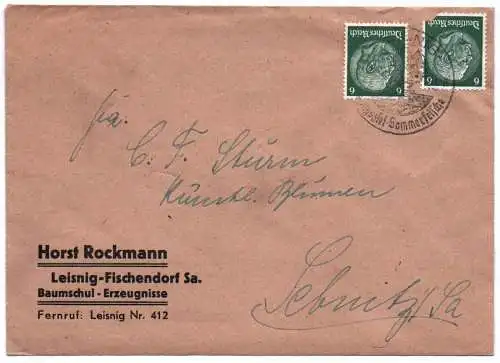 Deutsches Reich
6 6
Deutsches Reich
6 6
Sommerfrische
Fa.
C. F. Sturm
Künstl. Blumen
Sebnitz/Sa
Horst Rockmann
Leisnig-Fischendorf Sa.
Baumschul-Erzeugnisse
Fernruf: Leisnig Nr. 412